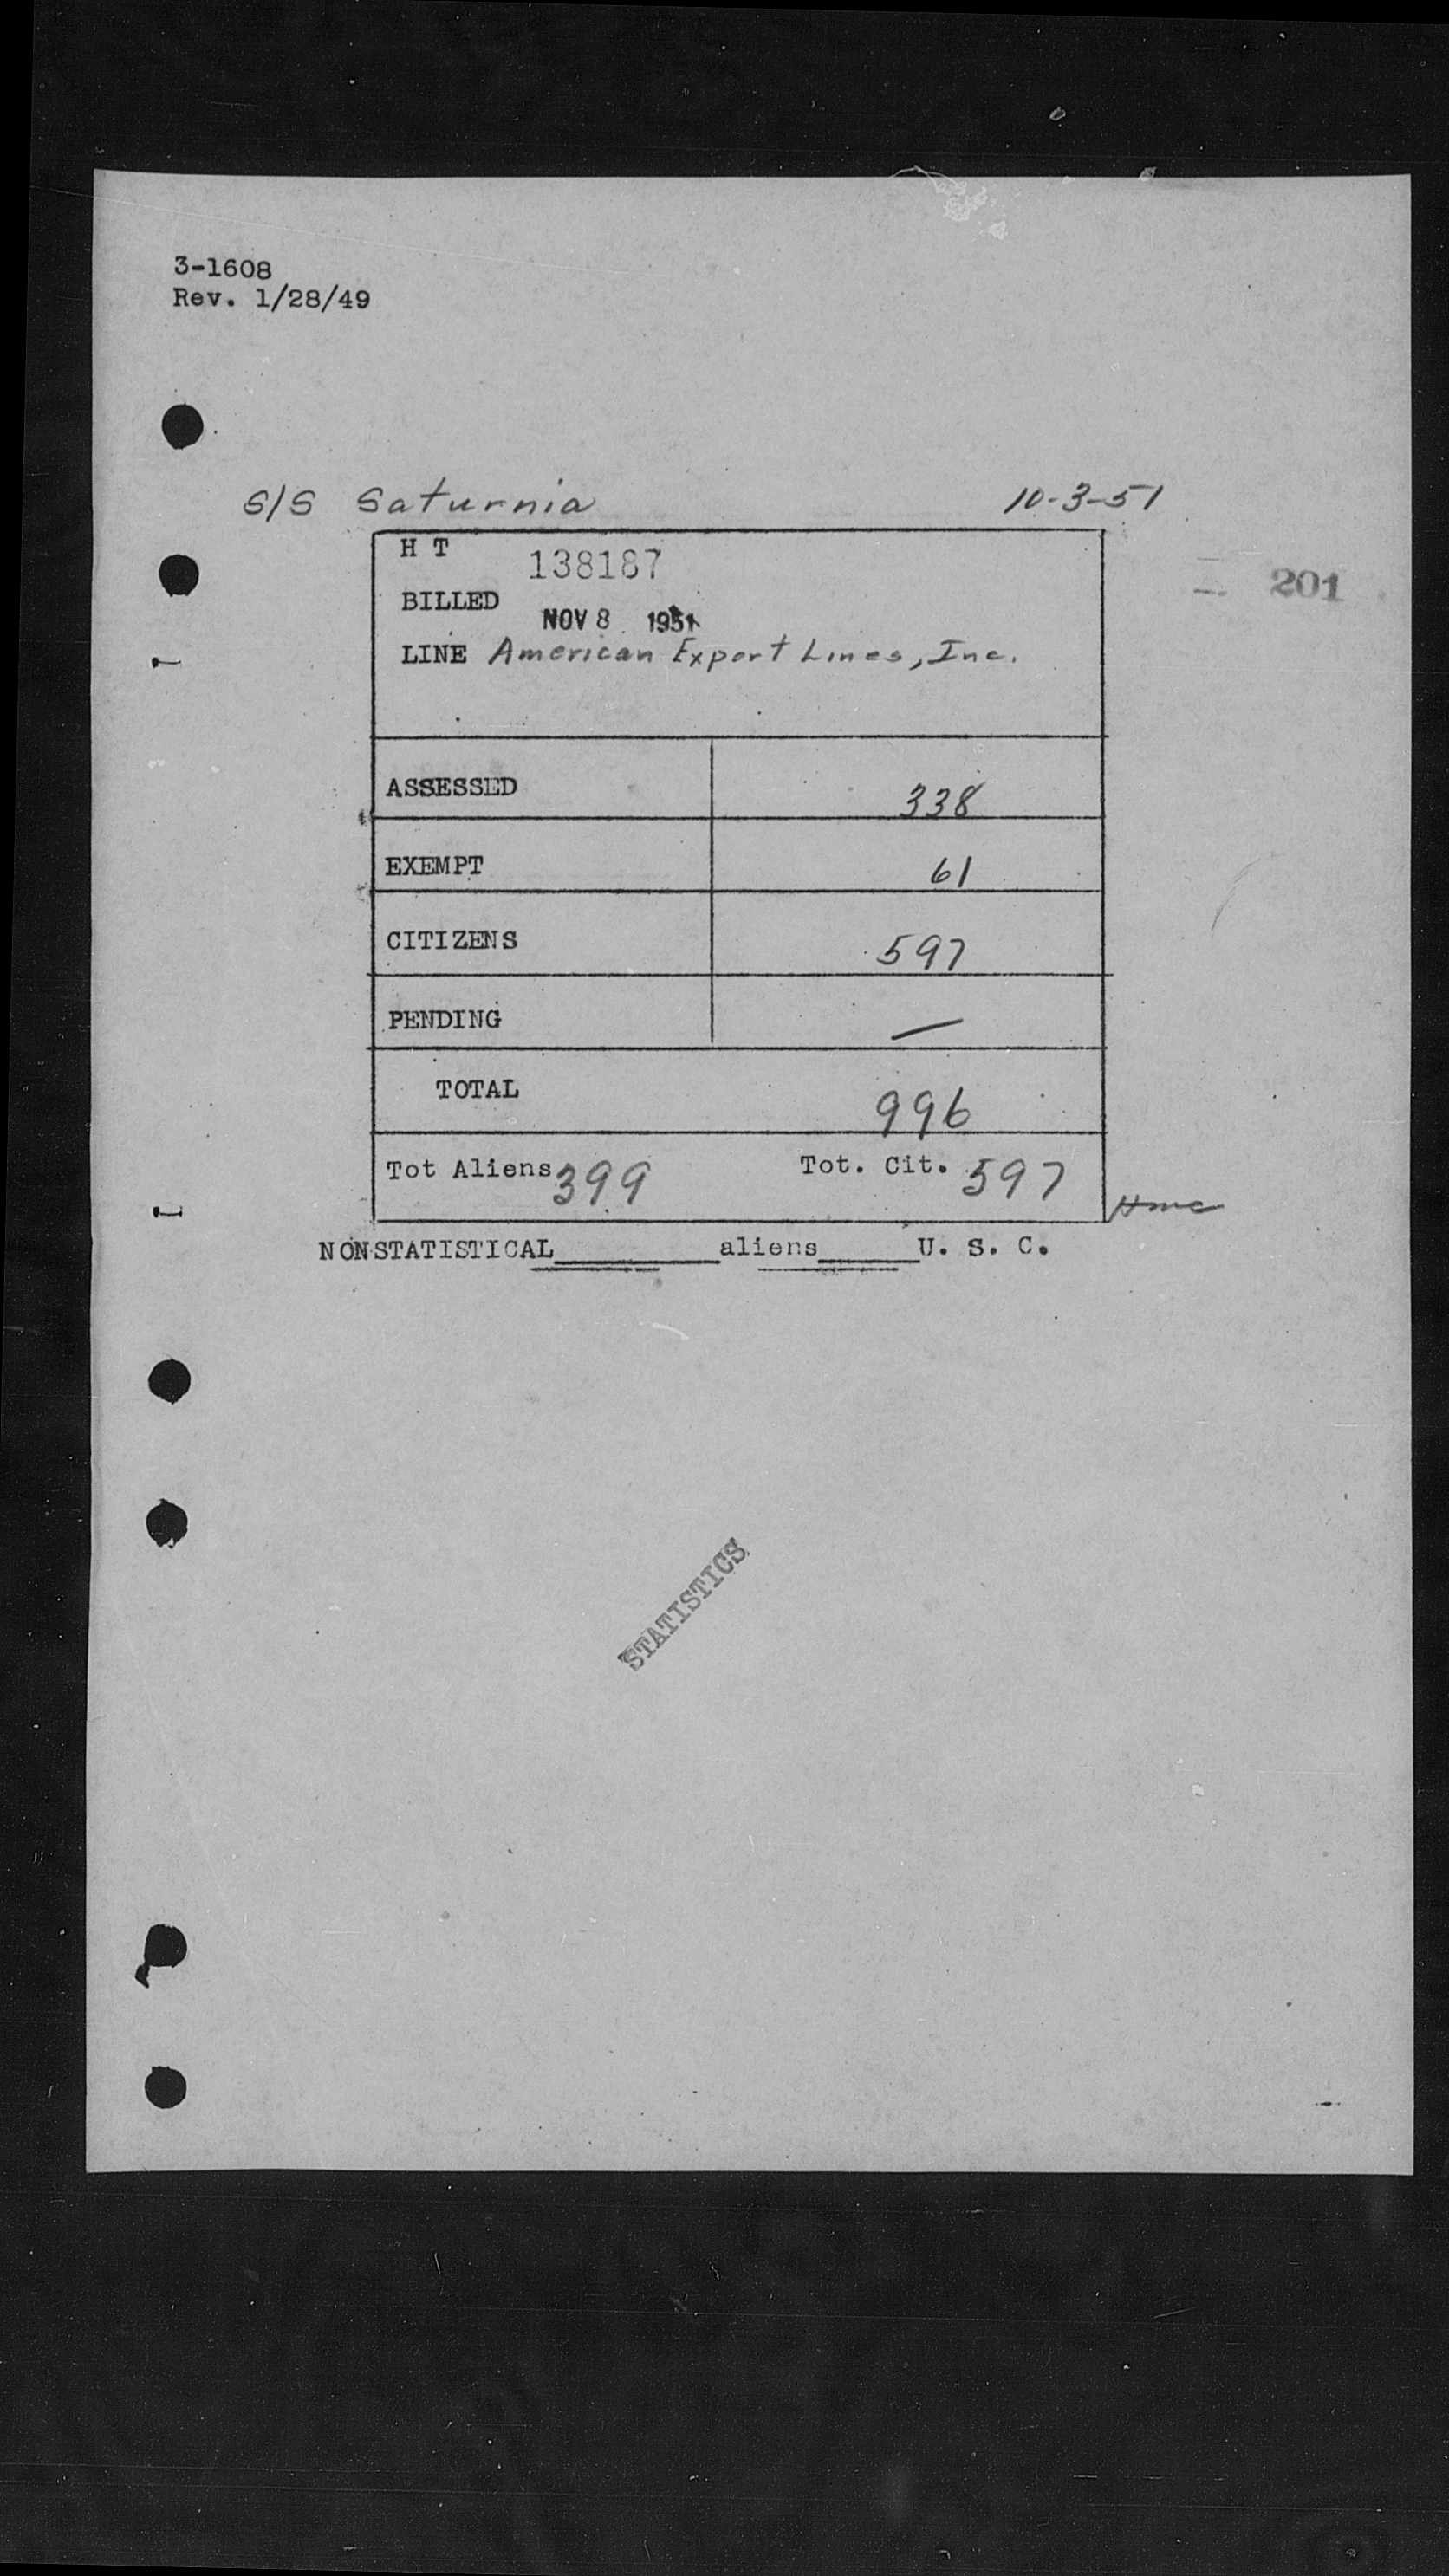 3-1608
Rev. 1/28/49
S/S Saturnia 10-3-51
H T 138187
201
BILLED NOV 8 1951
LINE American Export Lines, Inc.
ASSESSED 338
EXEMPT 61
CITIZENS 597
PENDING —
TOTAL 996
Tot Aliens 399 Tot. Cit. 597
NONSTATISTICAL________aliens_____U. S. C.
STATISTICS